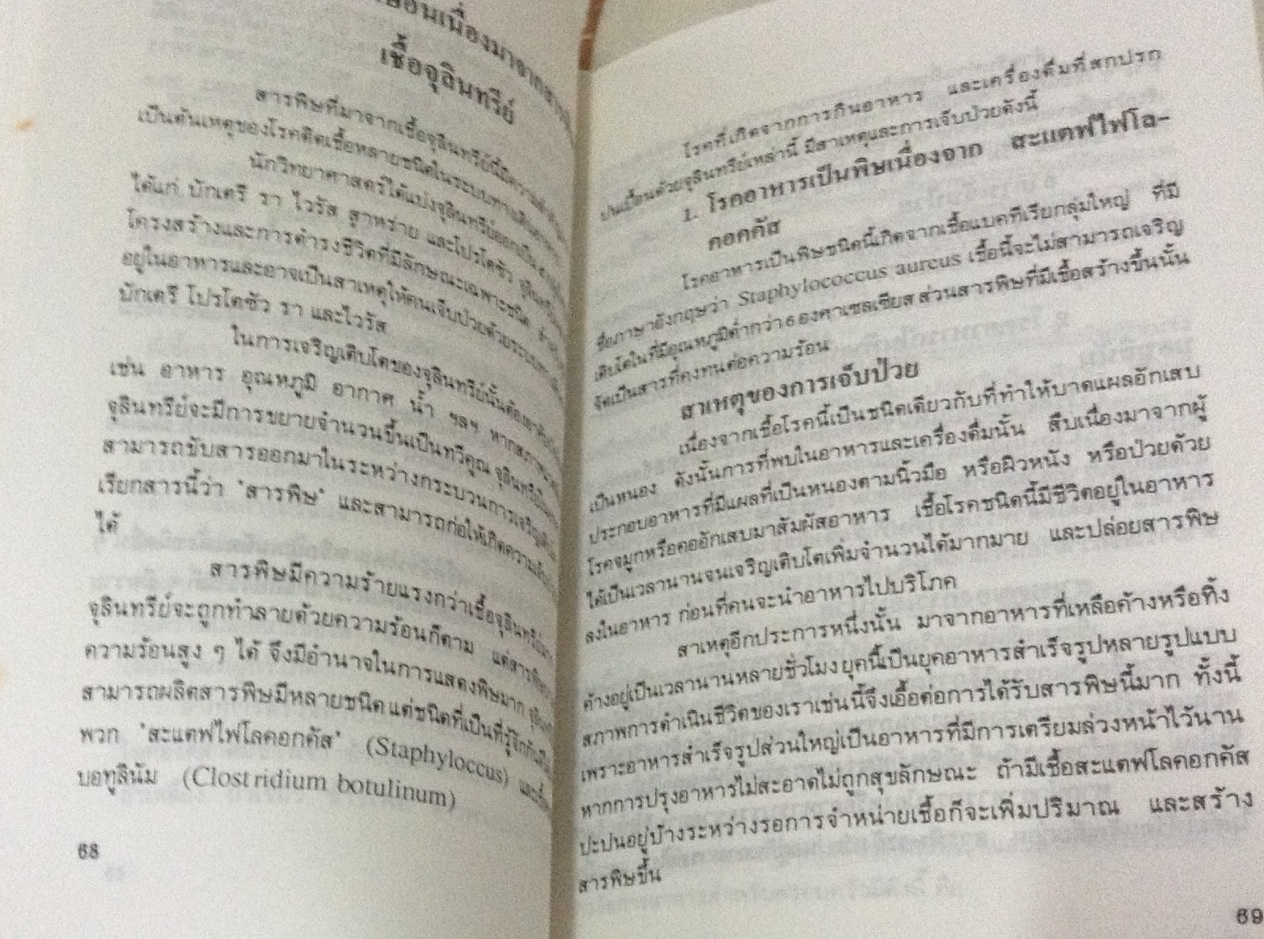 เนื่องมาจาก
เชื้อจุลินทรีย์
สารพิษที่มาจากเชื้อจุลินทรีย์นี้มีความสำคัญ
เป็นต้นเหตุของโรคติดเชื้อหลายชนิดในระบบทางเดินอาหาร
นักวิทยาศาสตร์ได้แบ่งจุลินทรีย์ออกเป็น
ได้แก่ บักเตรี รา ไวรัส สาหร่าย และโปรโตซัว
โครงสร้างและการดำรงชีวิตที่มีลักษณะเฉพาะชนิด
อยู่ในอาหารและอาจเป็นสาเหตุให้คนเจ็บป่วยด้วยระบบทางเดิน
บักเตรี โปรโตซัว รา และไวรัส
ในการเจริญเติบโตของจุลินทรีย์นั้นต้องอาศัย
เช่น อาหาร อุณหภูมิ อากาศ น้ำ ฯลฯ หาก
จุลินทรีย์จะมีการขยายจำนวนขึ้นเป็นทวีคูณ จุลินทรีย์
สามารถขับสารออกมาในระหว่างกระบวนการเจริญเติบโต
เรียกสารนี้ว่า "สารพิษ" และสามารถก่อให้เกิดความ
ได้
สารพิษมีความร้ายแรงกว่าเชื้อจุลินทรีย์
จุลินทรีย์จะถูกทำลายด้วยความร้อนก็ตาม แต่สารพิษ
ความร้อนสูง ๆ ได้ จึงมีอำนาจในการแสดงพิษมาก
สามารถผลิตสารพิษมีหลายชนิด แต่ชนิดที่เป็นที่รู้จักกัน
พวก "สะแตฟไฟโลคอกคัส" (Staphyloccus) และ
บอทูลินัม (Clostridium botulinum)
68
โรคที่เกิดจากการกินอาหาร และเครื่องดื่มที่สกปรก
ปนเปื้อนด้วยจุลินทรีย์เหล่านี้ มีสาเหตุและการเจ็บป่วยดังนี้
1. โรคอาหารเป็นพิษเนื่องจาก สะแตฟไฟโล-
คอคคัส
โรคอาหารเป็นพิษชนิดนี้เกิดจากเชื้อแบคทีเรียกลุ่มใหญ่ ที่มี
ชื่อภาษาอังกฤษว่า Staphylococcus aureus เชื้อนี้จะไม่สามารถเจริญ
เติบโตในที่มีอุณหภูมิต่ำกว่า 6 องศาเซลเซียส ส่วนสารพิษที่มีเชื้อสร้างขึ้นนั้น
จัดเป็นสารที่คงทนต่อความร้อน
สาเหตุของการเจ็บป่วย
เนื่องจากเชื้อโรคนี้เป็นชนิดเดียวกับที่ทำให้บาดแผลอักเสบ
เป็นหนอง ดังนั้นการที่พบในอาหารและเครื่องดื่มนั้น สืบเนื่องมาจากผู้
ประกอบอาหารที่มีแผลที่เป็นหนองตามนิ้วมือ หรือผิวหนัง หรือป่วยด้วย
โรคจมูกหรือคออักเสบมาสัมผัสอาหาร เชื้อโรคชนิดนี้มีชีวิตอยู่ในอาหาร
ได้เป็นเวลานานจนเจริญเติบโตเพิ่มจำนวนได้มากมาย และปล่อยสารพิษ
ลงในอาหาร ก่อนที่คนจะนำอาหารไปบริโภค
สาเหตุอีกประการหนึ่งนั้น มาจากอาหารที่เหลือค้างหรือทิ้ง
ค้างอยู่เป็นเวลานานหลายชั่วโมง ยุคนี้เป็นยุคอาหารสำเร็จรูปหลายรูปแบบ
สภาพการดำเนินชีวิตของเราเช่นนี้จึงเอื้อต่อการได้รับสารพิษนี้มาก ทั้งนี้
เพราะอาหารสำเร็จรูปส่วนใหญ่เป็นอาหารที่มีการเตรียมล่วงหน้าไว้นาน
หากการปรุงอาหารไม่สะอาดไม่ถูกสุขลักษณะ ถ้ามีเชื้อสะแตฟโลคอคคัส
ปะปนอยู่บ้างระหว่างรอการจำหน่ายเชื้อก็จะเพิ่มปริมาณ และสร้าง
สารพิษขึ้น
69